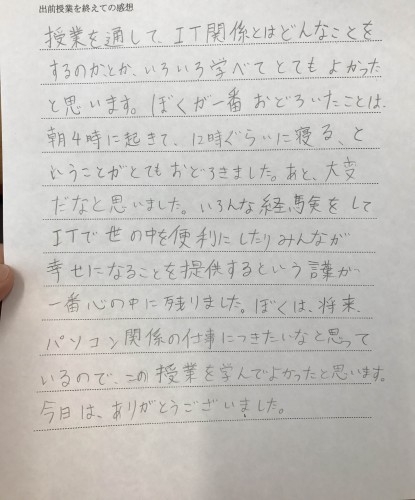 出前授業を終えての感想
授業を通して、IT関係とはどんなことを
するのかとか、いろいろ学べてとてもよかった
と思います。ぼくが一番おどろいたことは、
朝4時に起きて、12時ぐらいに寝る、と
いうことがとてもおどろきました。あと、大変
だなと思いました。いろんな経験をして
ITで世の中を便利にしたりみんなが
幸せになることを提供するという言葉が
一番心の中に残りました。ぼくは、将来、
パソコン関係の仕事につきたいなと思って
いるので、この授業を学んでよかったと思います。
今日は、ありがとうございました。